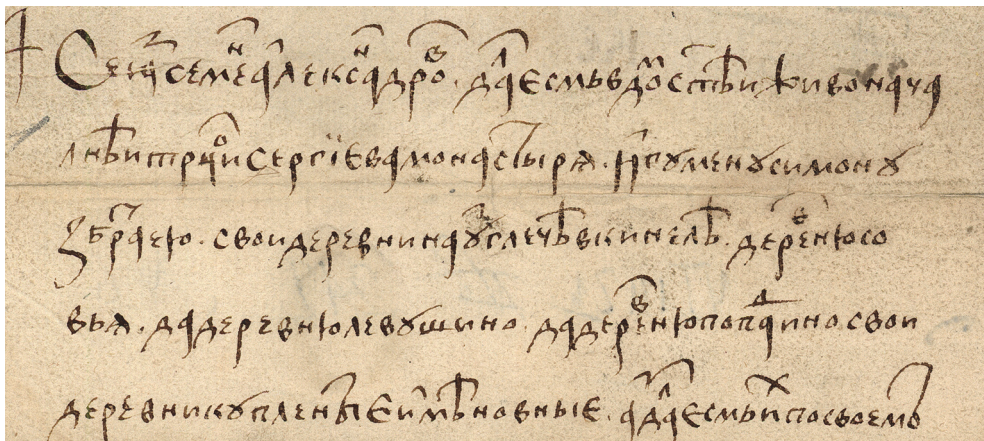 Се яз Семен Александров дал есмь в дом с̃тѣи живонача
лнѣи трцои Сергиева монастыря игуменꙋ симонꙋ
з братею свои деревни на ꙋглечѣ в кинелѣ деревню со
вья да деревню левꙋшино да деревню попадино свои
деревни кꙋпленые и мѣновные а дал есмь их по своемо